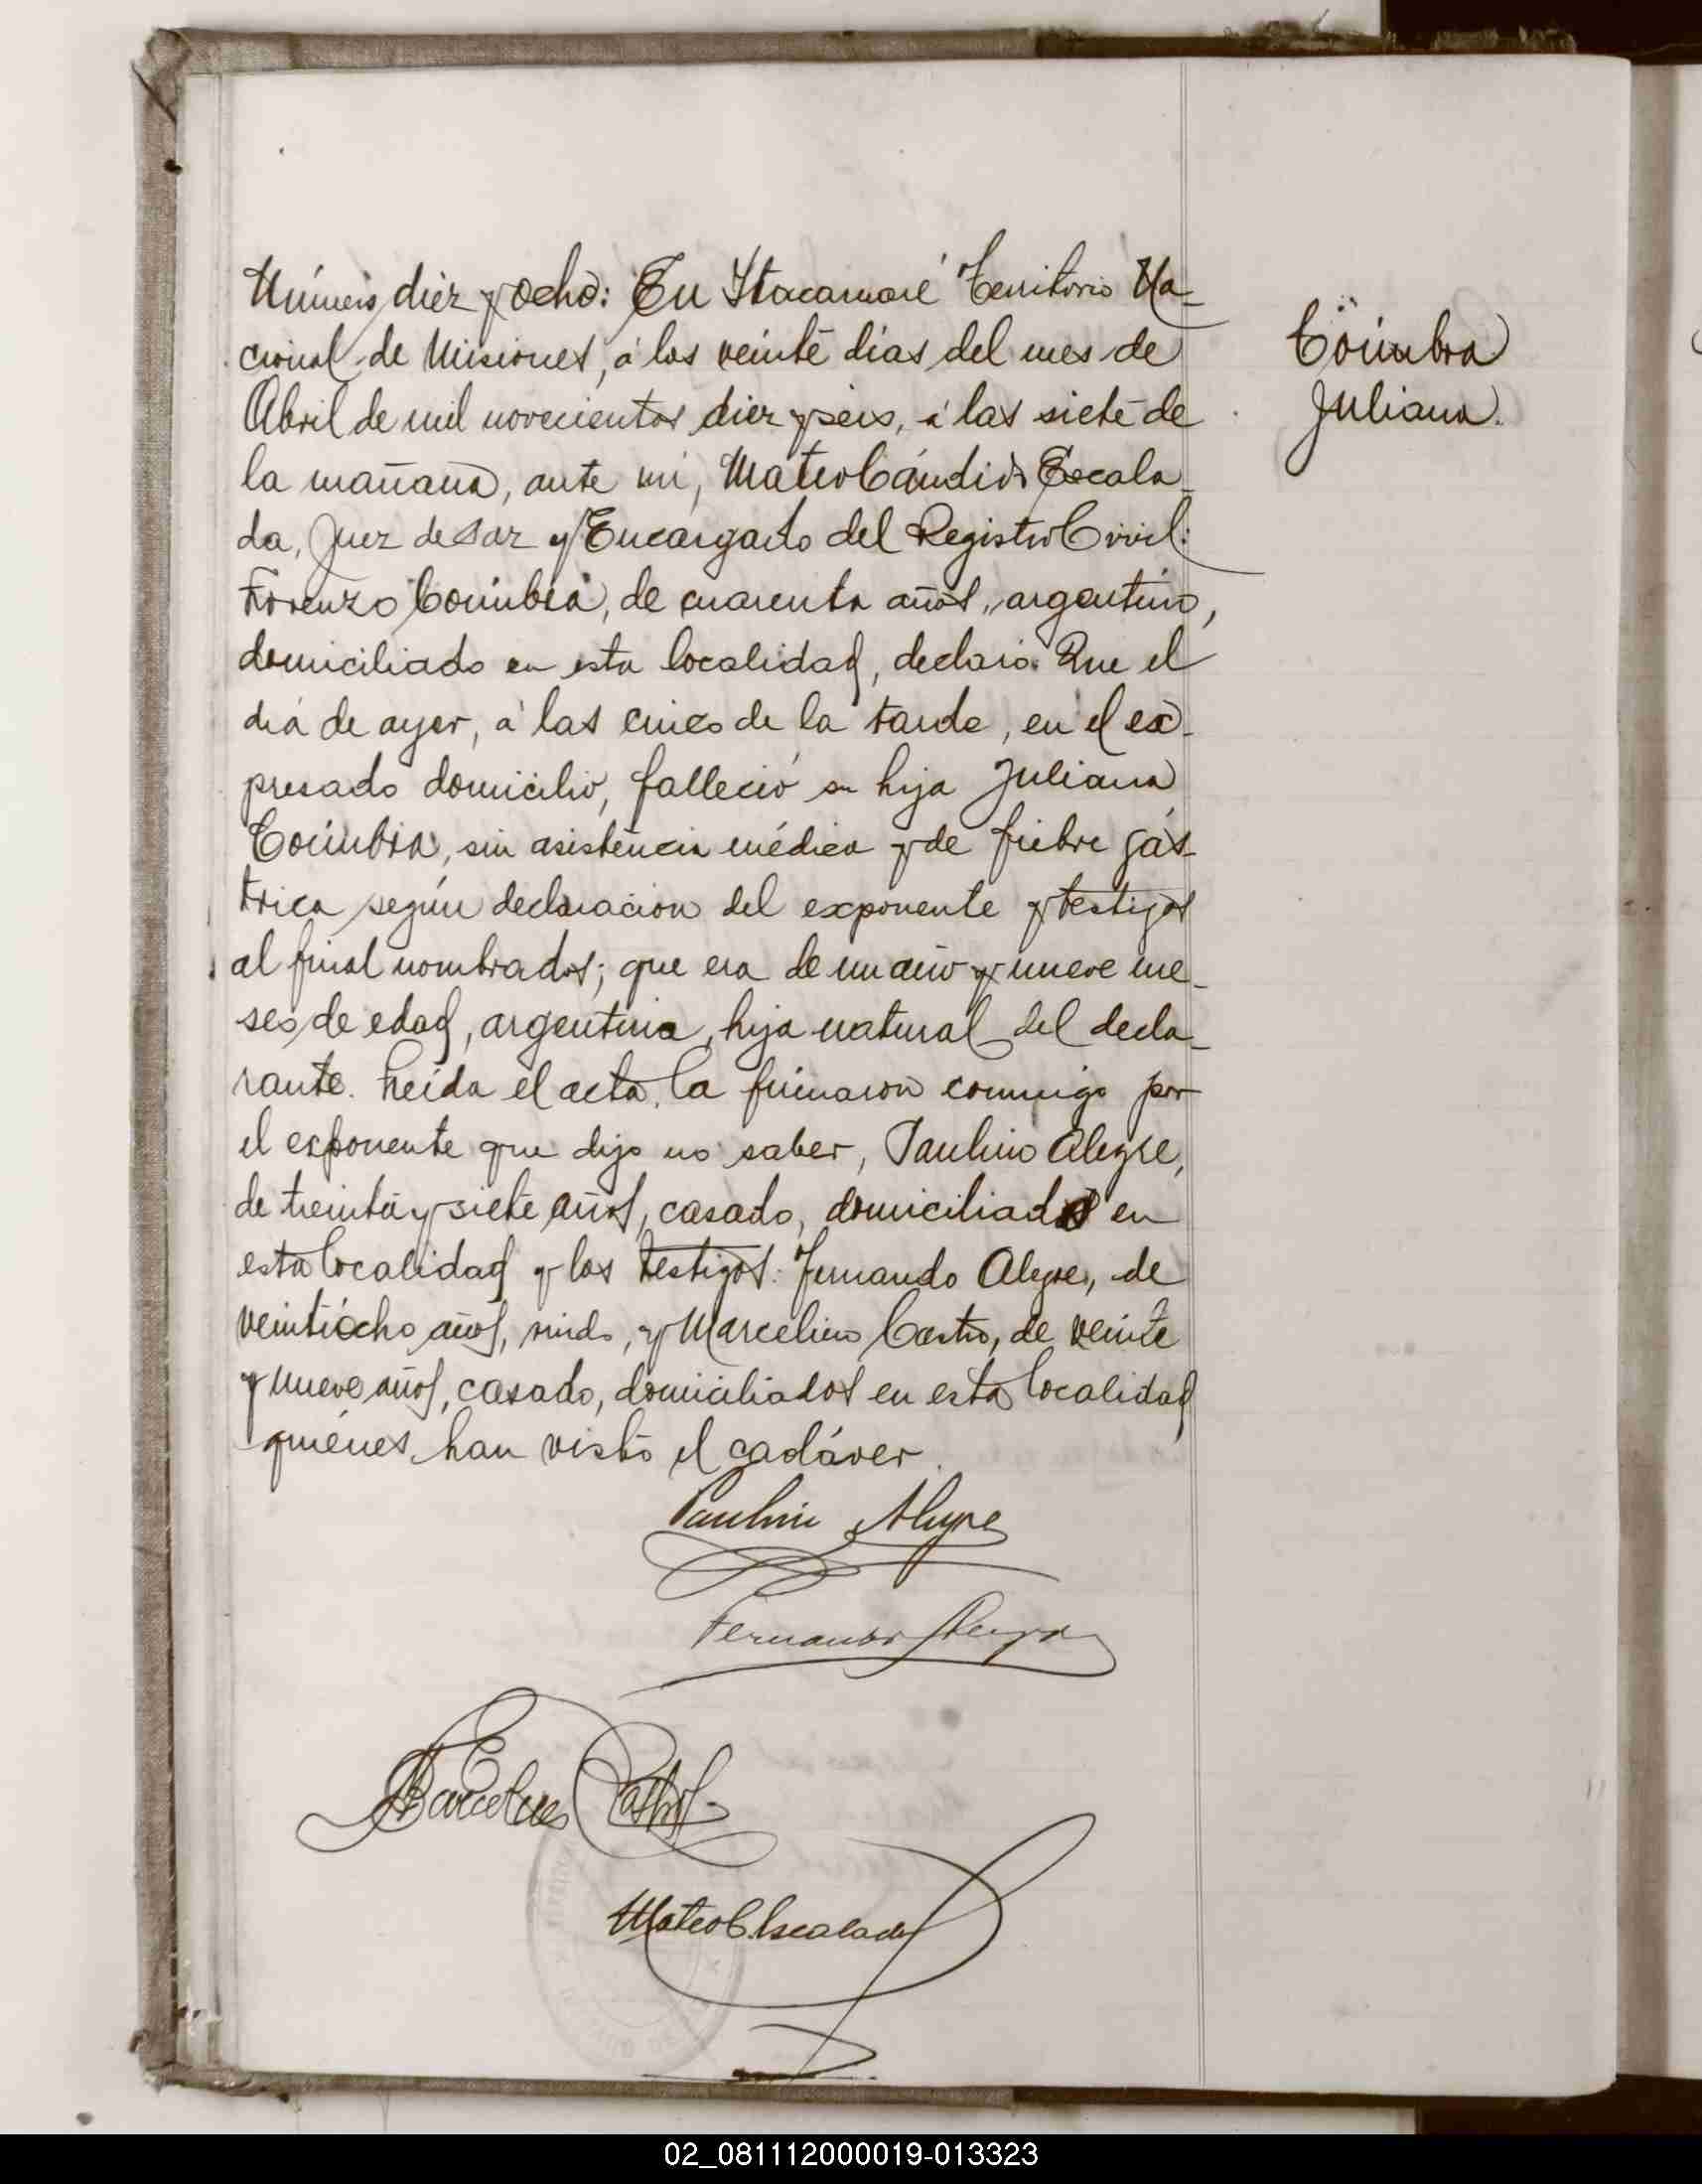 Número diez y ocho: En Itacaruaré Territorio Na-
cional de Misiones, á los veinte dias del mes de
Abril de mil novecientos diez y seis, á las siete de
la mañana, ante mi, Mateo Cándido Escala-
da, Juez de Paz y Encargado del Registro Civil:
Lorenzo Coimbra, de cuarenta años, argentino,
domiciliado en esta localidad, declaró: Que el
dia de ayer, á las cinco de la tarde, en el ex-
presado domicilio, falleció su hija Juliana
Coimbra, sin asistencia médica y de fiebre gás-
trica según declaracion del exponente y testigos
al final nombrados; que era de un año y nueve me-
ses de edad, argentina, hija natural del decla-
rante. Leida el acta, la firmaron conmigo por
el exponente que dijo no saber, Paulino Alegre,
de treinta y siete años, casado, domiciliado en
esta localidad y los testigos: Fernando Alegre, de
veintiocho años, viudo, y Marcelino Castro, de veinte
y nueve años, casado, domiciliados en esta localidad
quiénes han visto el cadáver.
Coimbra
Juliana.
Paulino Alegre
Fernando Alegre
Marcelino Castro
Mateo C. Escalada
02_081112000019-013323